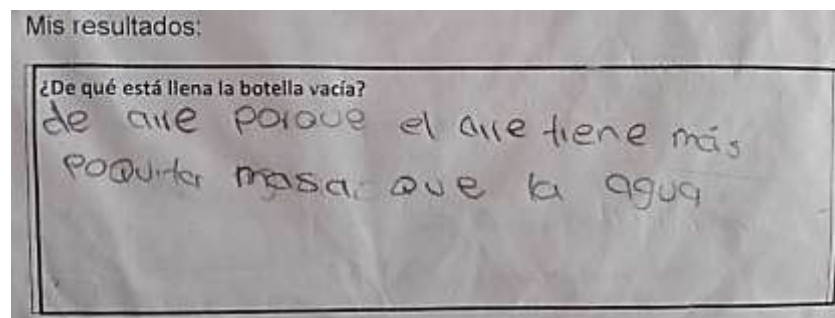 Mis resultados:
¿De qué está llena la botella vacía?
de aire porque el aire tiene más
poquita masa que la agua